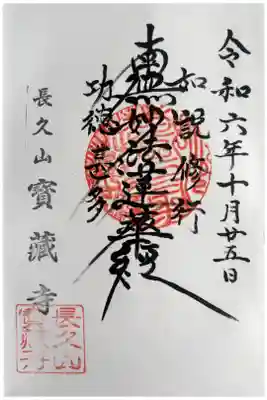 令和六年十月廿五日
如説修行
南無妙法蓮華経
功徳甚多
長久山 寶藏寺
長久山